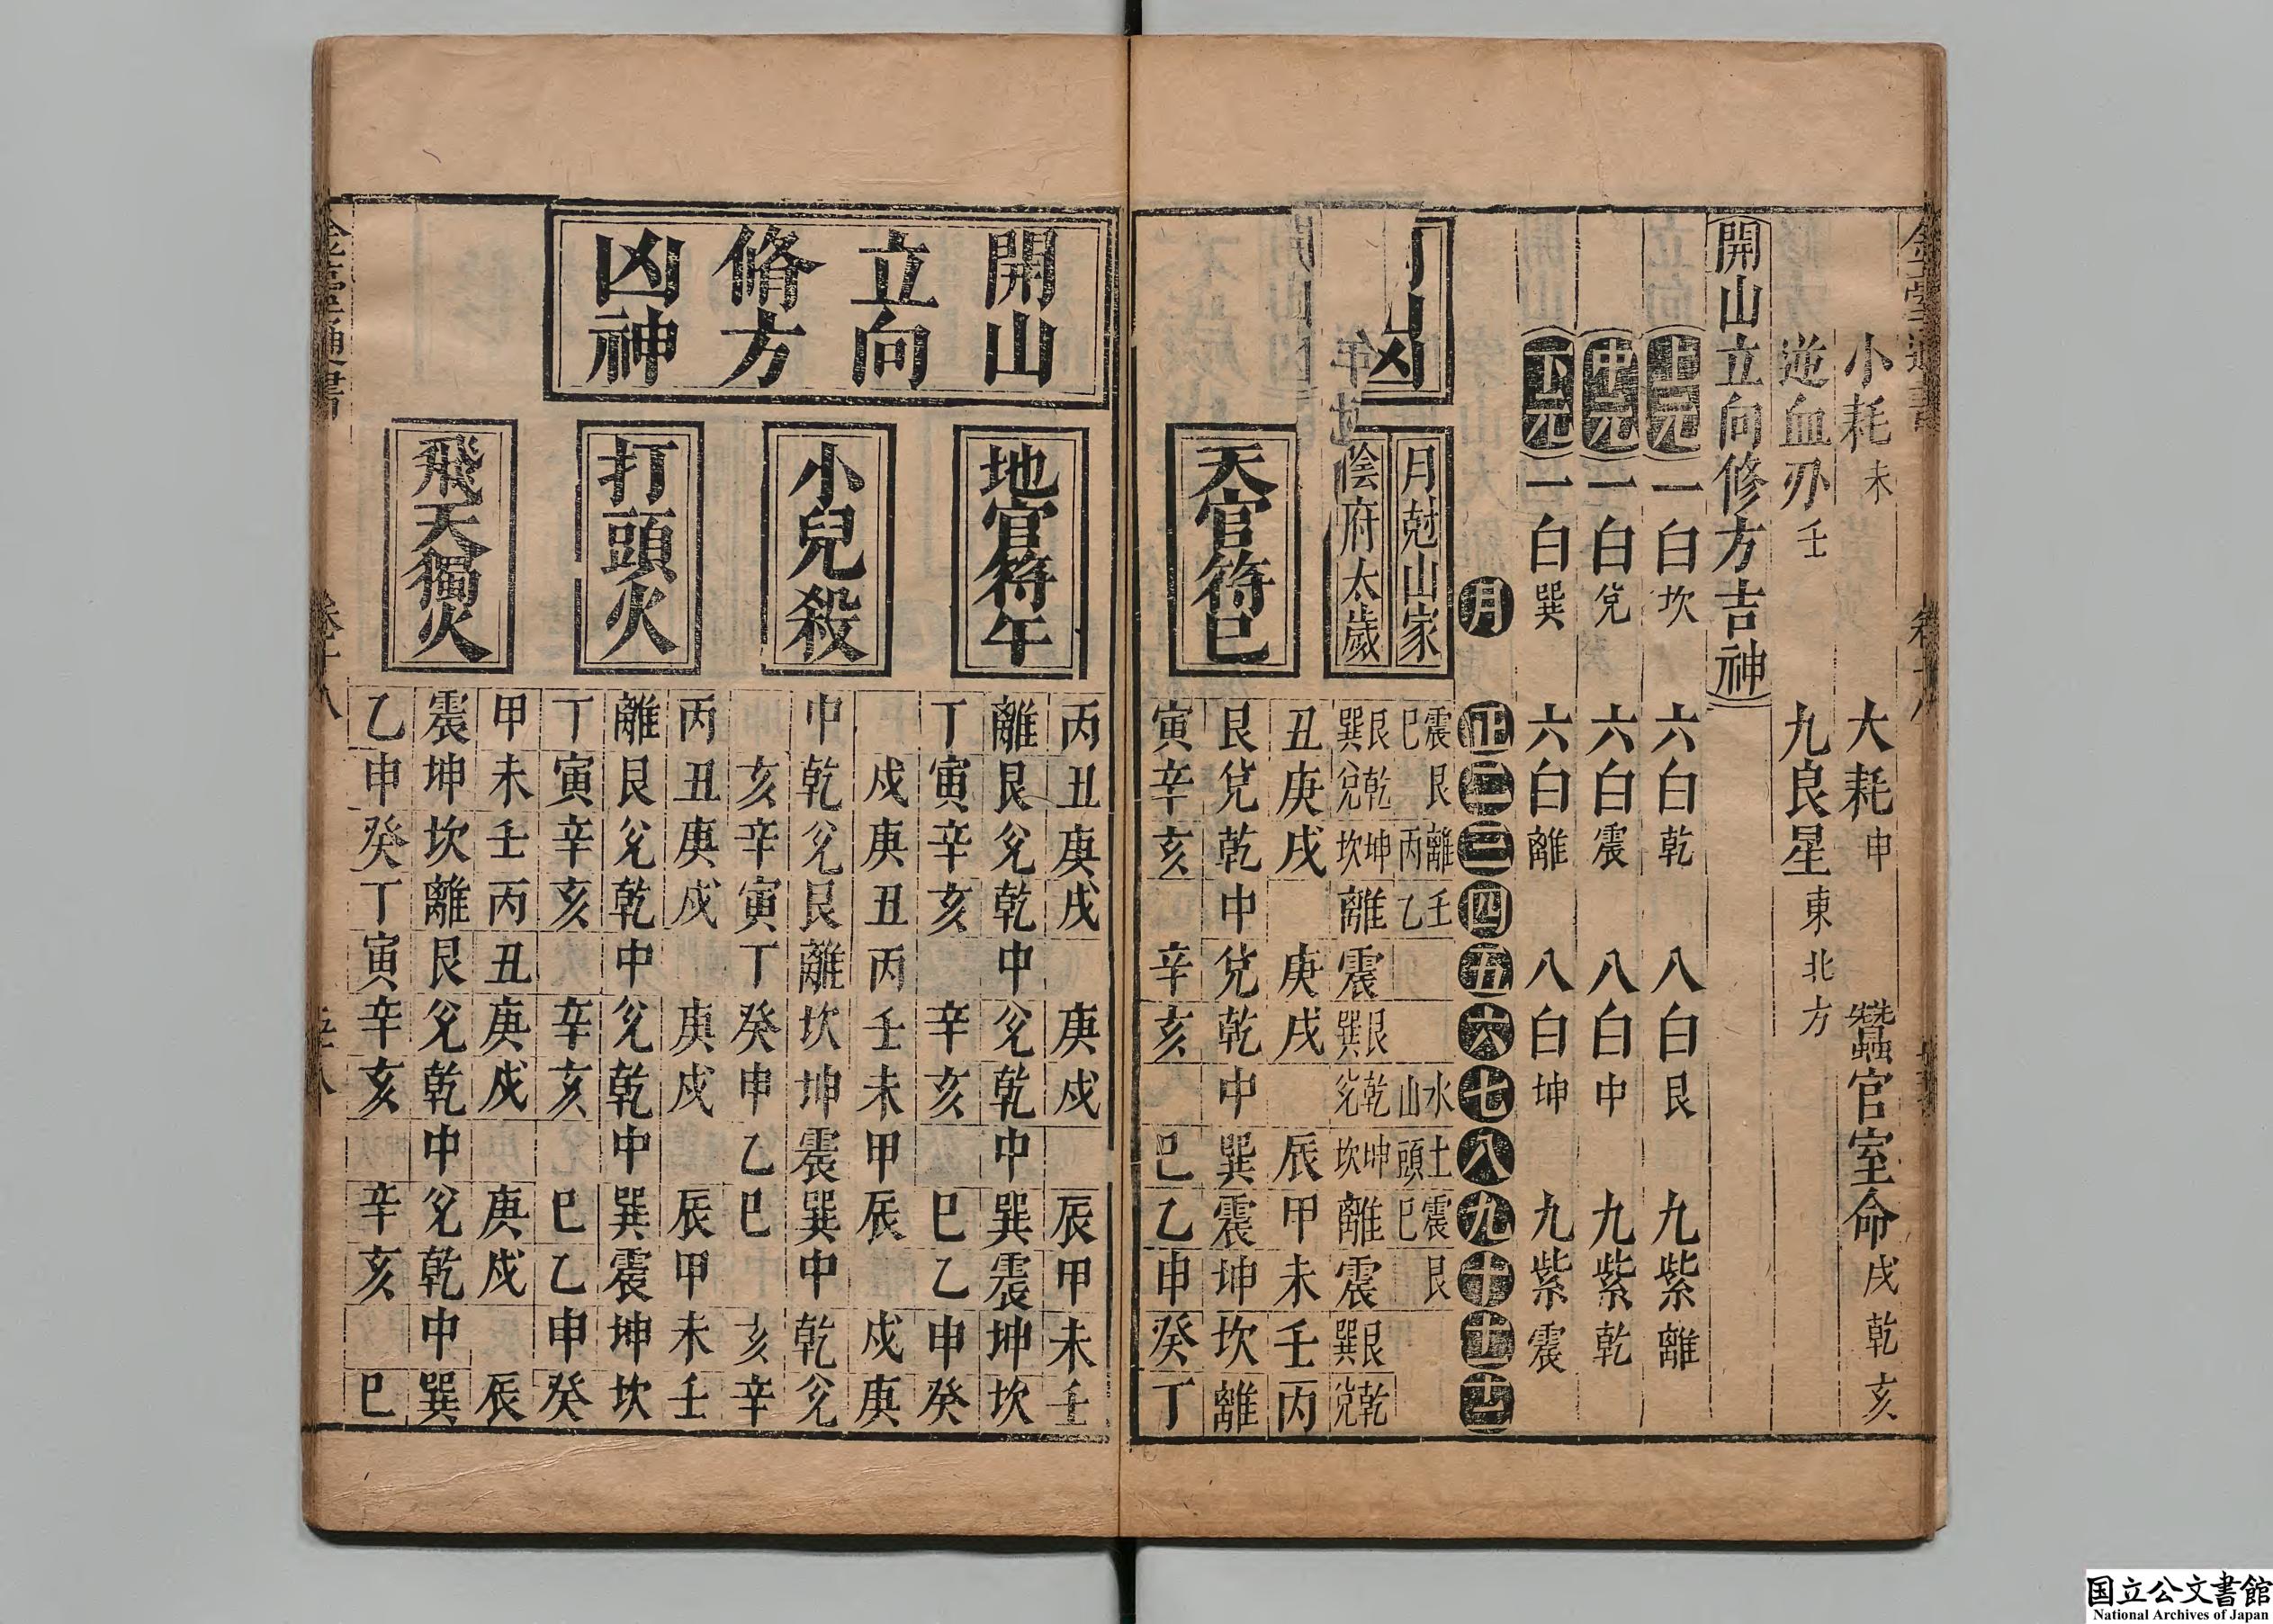 小耗未 大耗申 蠶官室命戌乾亥
逆血刃壬 九良星東北方
開山立向修方吉神
上元一白坎 六白乾 八白艮 九紫離
中元一白兌 六白震 八白中 九紫乾
下元一白巽 六白離 八白坤 九紫震
月 正二三四五六七八九十十一十二
凶
月尅山家 震巳 艮 離丙 壬乙 水山 土頭 震巳 艮
陰府太歲 艮巽 乾兌 坤坎 離 震 艮巽 乾兌 坤坎 離 震 艮巽 乾兌
天官符巳
丑庚戌 庚戌 辰甲未壬丙
艮兌乾中兌乾中巽震坤坎離
寅辛亥 辛亥 巳乙申癸丁
開山
立向
脩方
凶神
地官符午
丙丑庚戌 庚戌 辰甲未壬
離艮兌乾中兌乾中巽震坤坎
丁寅辛亥 辛亥 巳乙申癸
小兒殺
戌庚丑丙壬未甲辰 戌庚
中乾兌艮離坎坤震巽中乾兌
亥辛寅丁癸申乙巳 亥辛
打頭火
丙丑庚戌 庚戌 辰甲未壬
離艮兌乾中兌乾中巽震坤坎
丁寅辛亥 辛亥 巳乙申癸
飛天獨火
甲未壬丙丑庚戌 庚戌 辰
震坤坎離艮兌乾中兌乾中巽
乙申癸丁寅辛亥 辛亥 巳
国立公文書館
National Archives of Japan